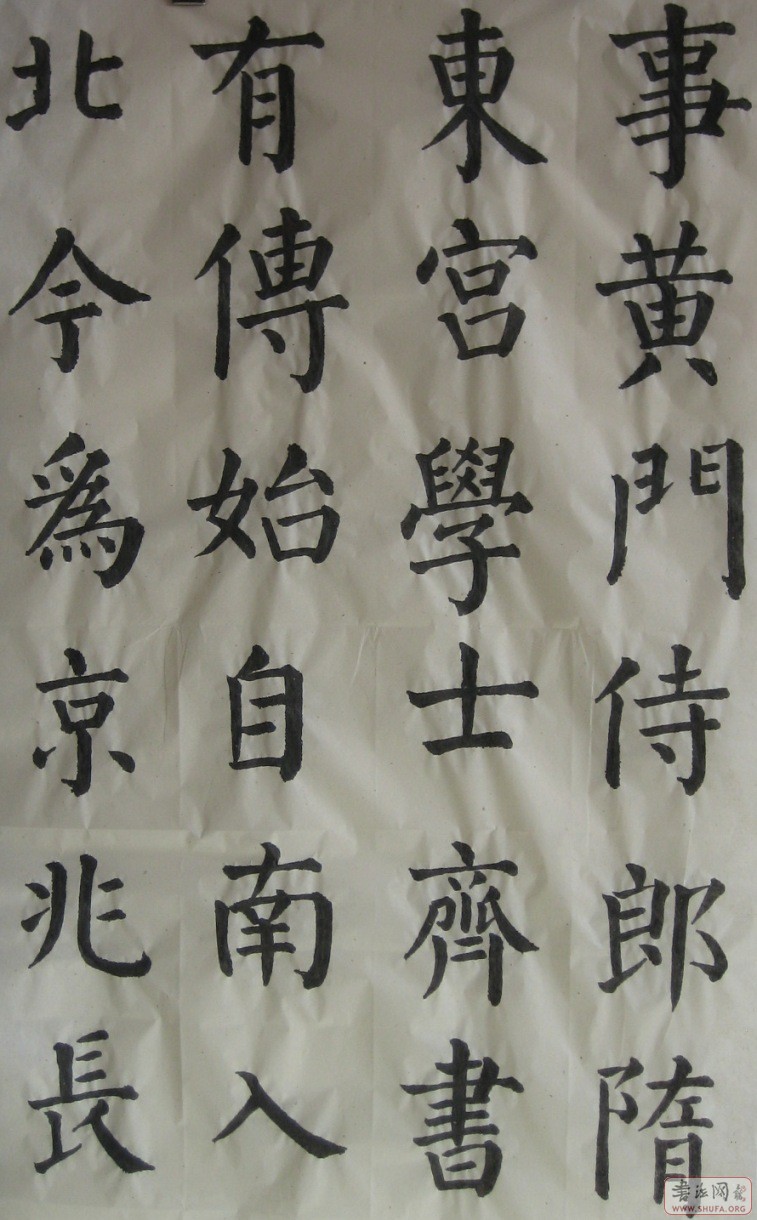 事黄門侍郎隋
東宮學士齊書
有傳始自南入
北今為京兆長
书法网
WWW.SHUFA.ORG